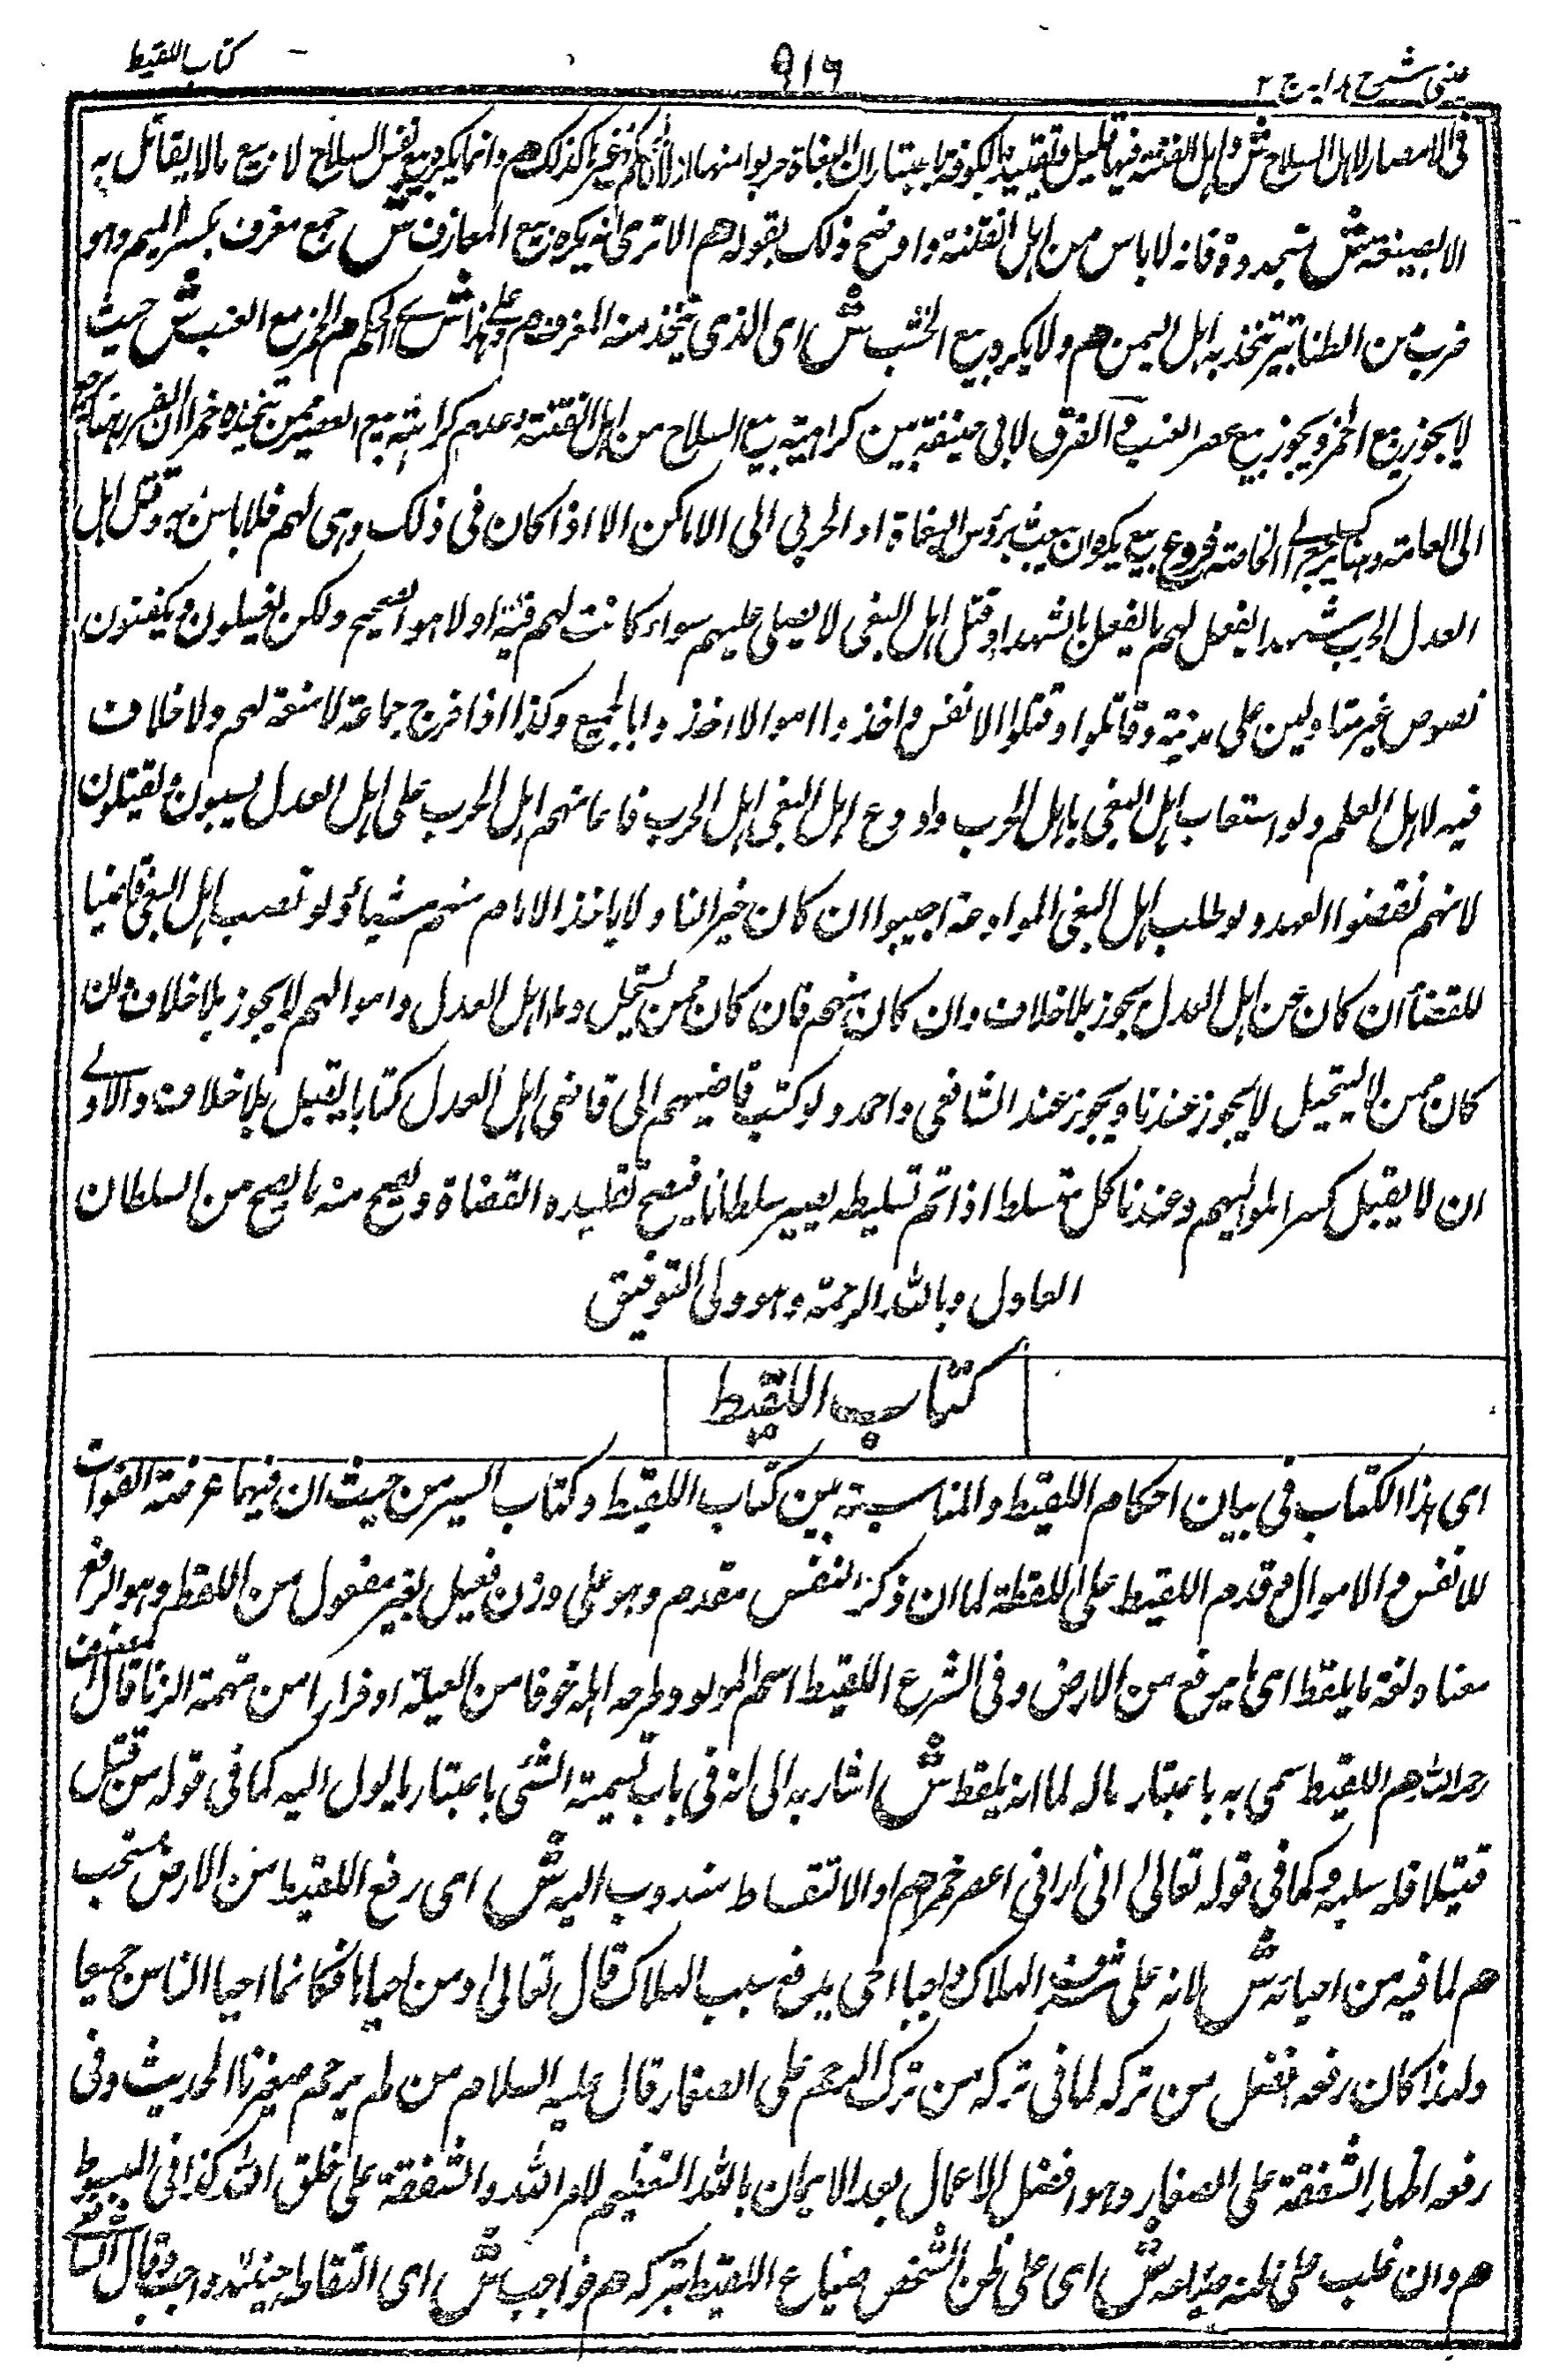 عینی شرح ہدایہ ج ۲
۹۱۶
کتاب اللقیط
فی الامصار لاہل السلاح ش واہل الفتنۃ فیہا قلیل وتقییدہ بالکوفۃ باعتبار ان البغاۃ خرجوا منہا اولا والحکم فی غیرہا کذلک ھم وانما یکرہ بیع نفس السلاح لا بیع مالا یقاتل بہ
الا بصنعۃ ش تستجد وۃ فانہ لا باس من اہل الفتنۃ واوضح ذلک بقولہ ھم الا تری انہ یکرہ بیع المعازف ش جمع معزف بکسر المیم وہو
ضرب من الطنابیر تتخذ بہ اہل الیمن ھم ولا یکرہ بیع الخشب ش ای الذی یتخذ منہ المعزف ھم وعلی ہذا ش الحکم ھم الخمر مع العنب ش حیث
لا یجوز بیع الخمر ویجوز بیع عصر العنب والفرق لابی حنیفۃ بین کراہیۃ بیع السلاح من اہل الفتنۃ وعدم کراہیۃ بیع العصیر ممن یتخذہ خمرا ان الضرر ہنا یرجع
الی العامۃ وہناک یرجع الی الخاصۃ فروع بیع یکرہ ان یبعث برؤس البغاۃ او الحربی الی الاماکن الا اذا کان فی ذلک وہی لہم فلا باس بہ وقتل اہل
العدل الحرب شہدا یفعل لہم ما یفعل بالشہدا وقتل اہل البغی لا یصلی علیہم سواء کانت لہم فئۃ او لا ہو الصحیح ولکن یغسلون ویکفنون
نصوص غیر متاولین علی مدینۃ وقاتلوا وقتلوا الانفس واخذوا الاموال اخذوا بالجمیع وکذا اذا خرج جماعۃ لا منعۃ لہم ولا خلاف
فیہ لاہل العلم ولو استعان اہل البغی باہل الحرب وادوع اہل البغی اہل الحرب فاعانہم اہل الحرب علی اہل العدل یسبون ویقتلون
لانہم نقضوا العہد ولو طلب اہل البغی الموادعۃ اجیبوا ان کان خیرا لنا ولا یاخذ الامام منہم شیئا ولو نصب اہل البغی قاضیا
للقضا ان کان من اہل العدل یجوز بلا خلاف وان کان منہم فان کان ممن یستحل دماء اہل العدل واموالہم لا یجوز بلا خلاف وان
کان ممن لا یستحیل لا یجوز عندنا ویجوز عند الشافعی واحمد ولو کتب قاضیہم الی قاضی اہل العدل کتابا یقبل بلا خلاف والاولی
ان لا یقبل کسرا لموالیہم وعندنا کل متسلط اذا تم تسلیطہ یصیر سلطانا فیصح تقلیدہ القضاۃ ویصح منہ ما یصح من السلطان
العادل وباللہ الرحمۃ وہو ولی التوفیق
کتاب اللقیط
ای ہذا الکتاب فی بیان احکام اللقیط والمناسبۃ بین کتاب اللقیط وکتاب السیر من حیث ان فیہما عرضۃ الفوات
للانفس والاموال وقدم اللقیط علی اللقطۃ لما ان ذکر النفس مقدم وہو علی وزن فعیل بغیر مفعول من اللقط وہو الرفع
معناہ لغۃ ما یلقط ای ما یرفع من الارض وفی الشرع اللقیط اسم المولود طرحہ اہلہ خوفا من العیلۃ او فرارا من تہمۃ الزنا قال المصنف
رحمہ اللہ ھم اللقیط سمی بہ باعتبار مالہ لما انہ یلقط ش اشار بہ الی انہ فی باب تسمیۃ الشئ باعتبار ما یؤل الیہ کما فی قولہ من قتل
قتیلا فلہ سلبہ وکما فی قولہ تعالی انی ارانی اعصر خمرا ھم والالتقاط مندوب الیہ ش ای رفع اللقیط من الارض مستحب
ھم لما فیہ من احیائہ ش لانہ علی شرف الہلاک واحیا الحی بدفع سبب الہلاک قال تعالی ومن احیاہا فکانما احیا الناس جمیعا
ولہذا کان رفعہ افضل من ترکہ لما فی ترکہ من ترک الترحم علی الصغار قال علیہ السلام من لم یرحم صغیرنا الحدیث وفی
رفعہ اظہار الشفقۃ علی الصغار وہو افضل الاعمال بعد الایمان باللہ التعظیم لامر اللہ والشفقۃ علی خلق اللہ کذا فی المبسوط
ھم وان غلب علی ظنہ ضیاعہ ش ای علی ظن الشخص ضیاع اللقیط بترکہ ھم فواجب ش ای التقاطہ حینئذ واجب وقال الشافعی